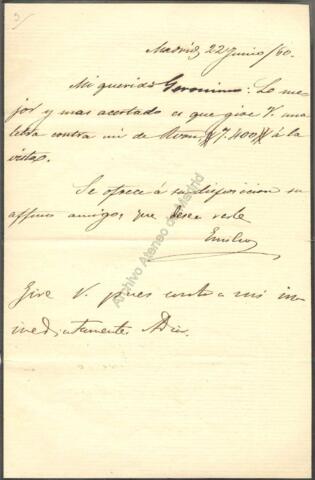 3/
Madrid, 22 Junio/60.
Mi querido Geronimo: Lo me-
jor y mas acertado es que gire V. una
letra contra mi de Rvon. //7.400// á la
vista.
Se ofrece á su disposicion su
affmo amigo, que desea verle
Emilio
Gire V. pues contra mi in-
mediatamente. Adios.
Archivo Ateneo de Madrid